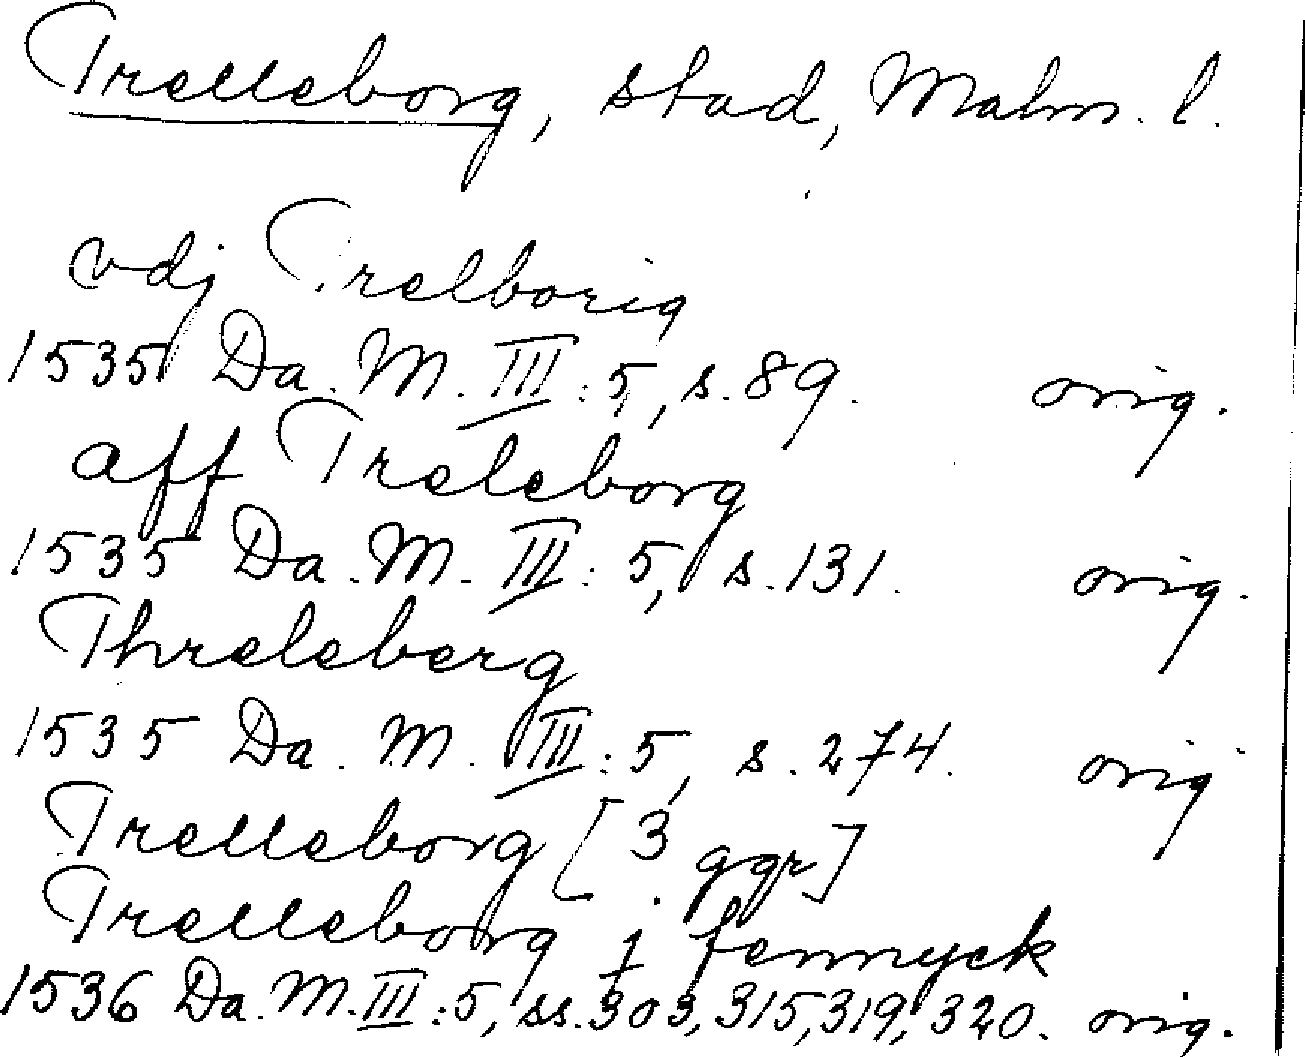 Trelleborg, stad, Malm. l.
vdj Trelborig
1535 Da. M. III: 5, s. 89. orig.
aff Treleborg
1535 Da. M. III: 5, s. 131. orig.
Threleberg
1535 Da. M. III: 5, s. 274. orig
Trelleborg [3 ggr]
Trelleborg j fennyck
1536 Da. M. III: 5, ss. 303, 315, 319, 320. orig.